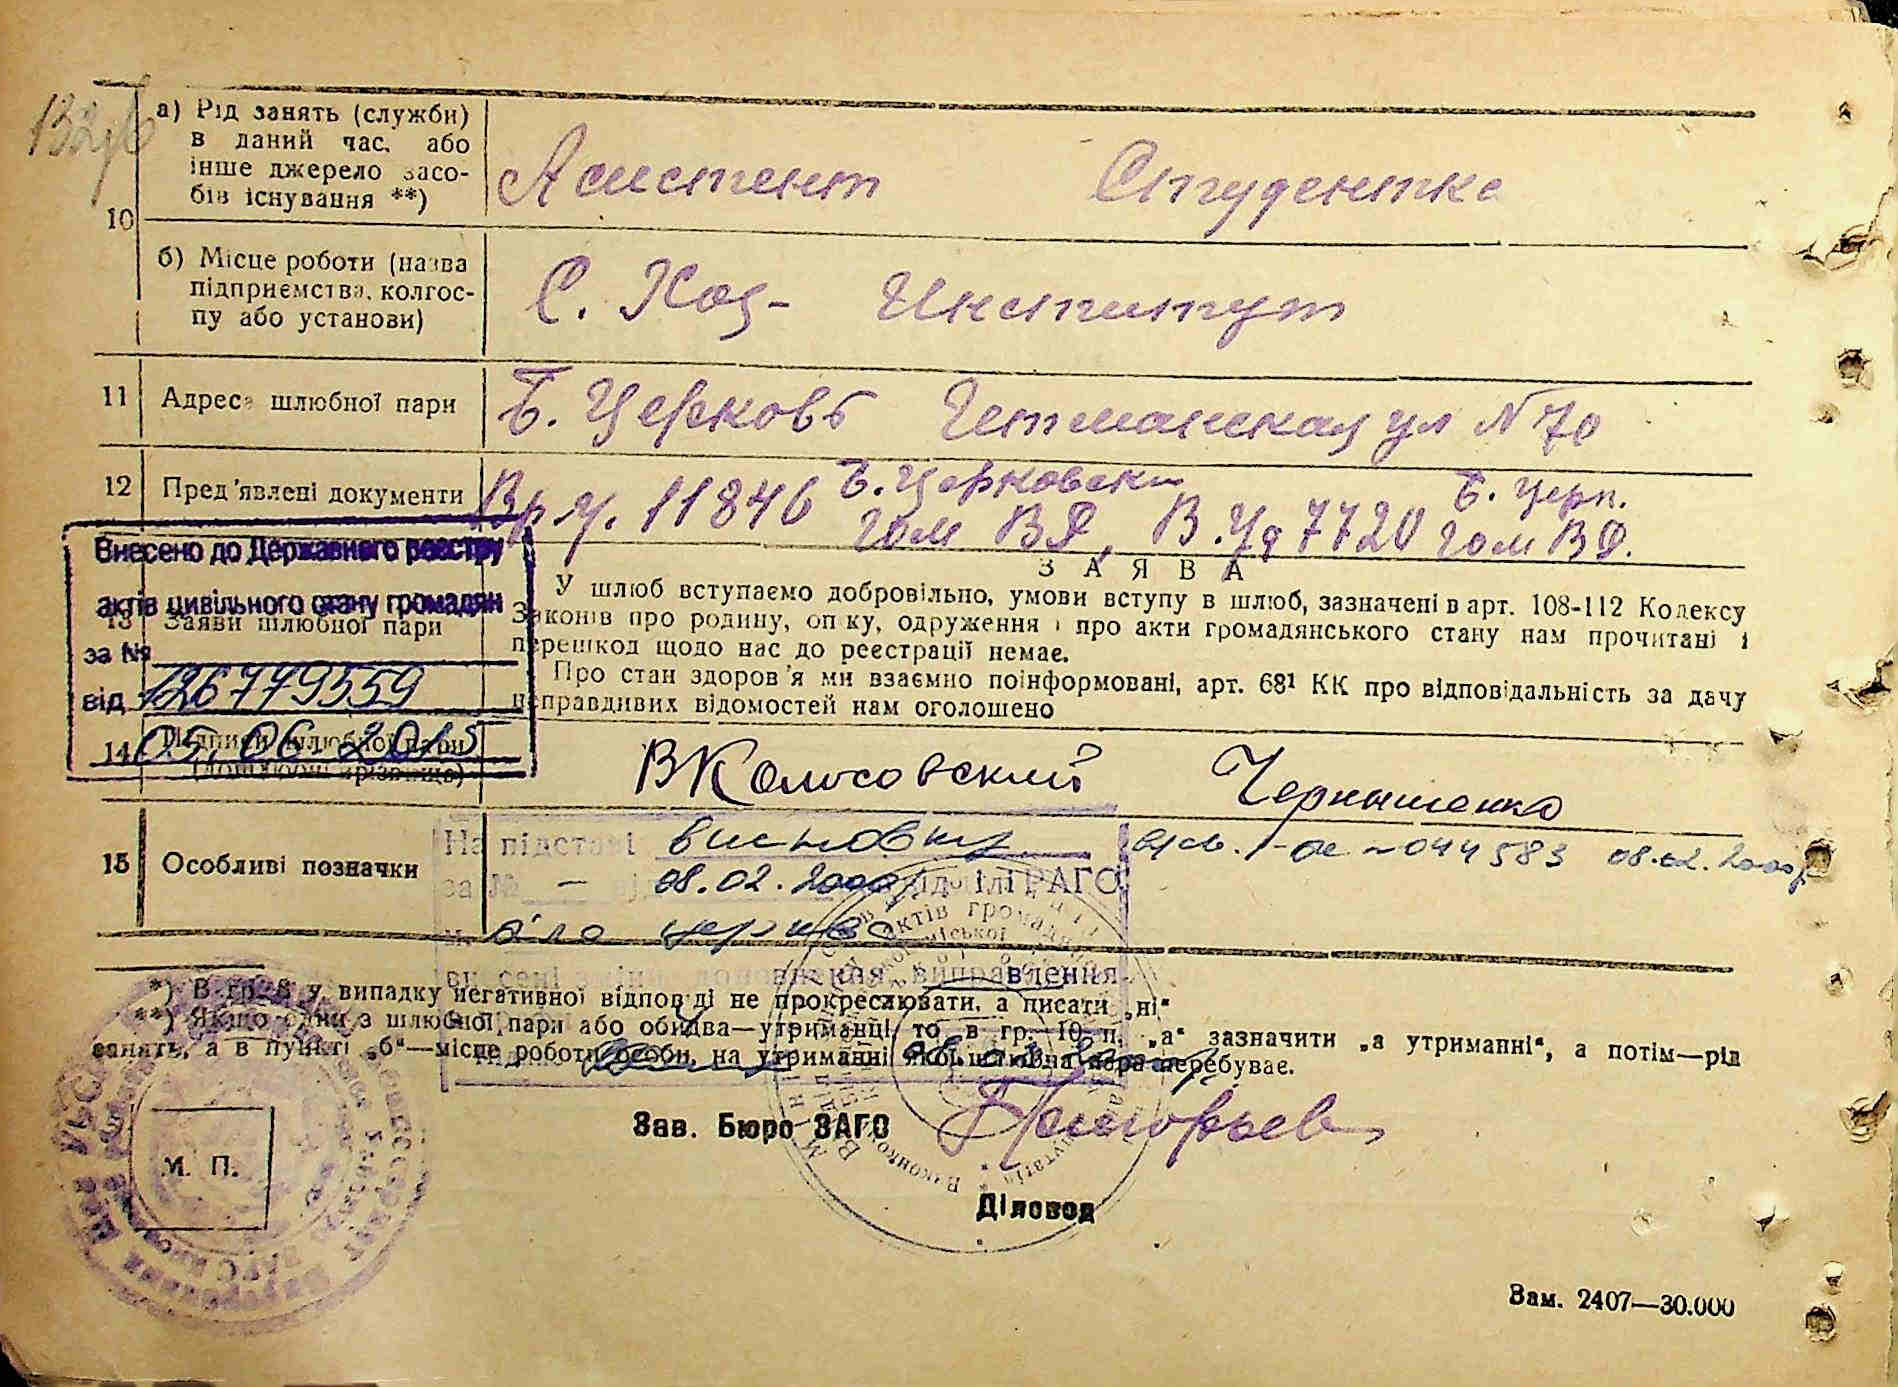 132
10
а) Рід занять (служби)
в даний час, або
інше джерело засо-
бів існування **)
Асистент Студентка
б) Місце роботи (назва
підприємства, колгос-
пу або установи)
С. Хоз- Институт
11 Адреса шлюбної пари
Б. Церковь Гетманская ул N 70
12 Пред'явлені документи
Вр у. 11846 Б.Церковски В. Уд 7720 Б. Церк.
гом ВД, гом ВД.
Внесено до Державного реєстру
актів цивільного стану громадян
за №
126779559
від
05.06.2015
13 Заяви шлюбної пари
ЗАЯВА
У шлюб вступаємо добровільно, умови вступу в шлюб, зазначені в арт. 108-112 Кодексу
Законів про родину, опіку, одруження і про акти громадянського стану нам прочитані і
перешкод щодо нас до реєстрації немає.
Про стан здоров'я ми взаємно поінформовані, арт. 68¹ КК про відповідальність за дачу
неправдивих відомостей нам оголошено
14 Підписи шлюбної пари
(дошлюбні прізвища)
ВКолосовский Чернышенко
15 Особливі позначки
На підставі висновку
за № — від 08.02.2000 відділі РАГС
м. Біла церква
виправлення
044583 08.02.2000р
*) В гр. 8 у випадку негативної відповіді не прокреслювати, а писати „ні“
**) Якщо один з шлюбної пари або обидва—утриманці, то в гр. 10 п. „а“ зазначити „а утриманні“, а потім—рід
занять, а в пункті „б“—місце роботи особи, на утриманні якої шлюбна пара перебуває.
М. П.
Зав. Бюро ЗАГС
Діловод
Зам. 2407—30.000